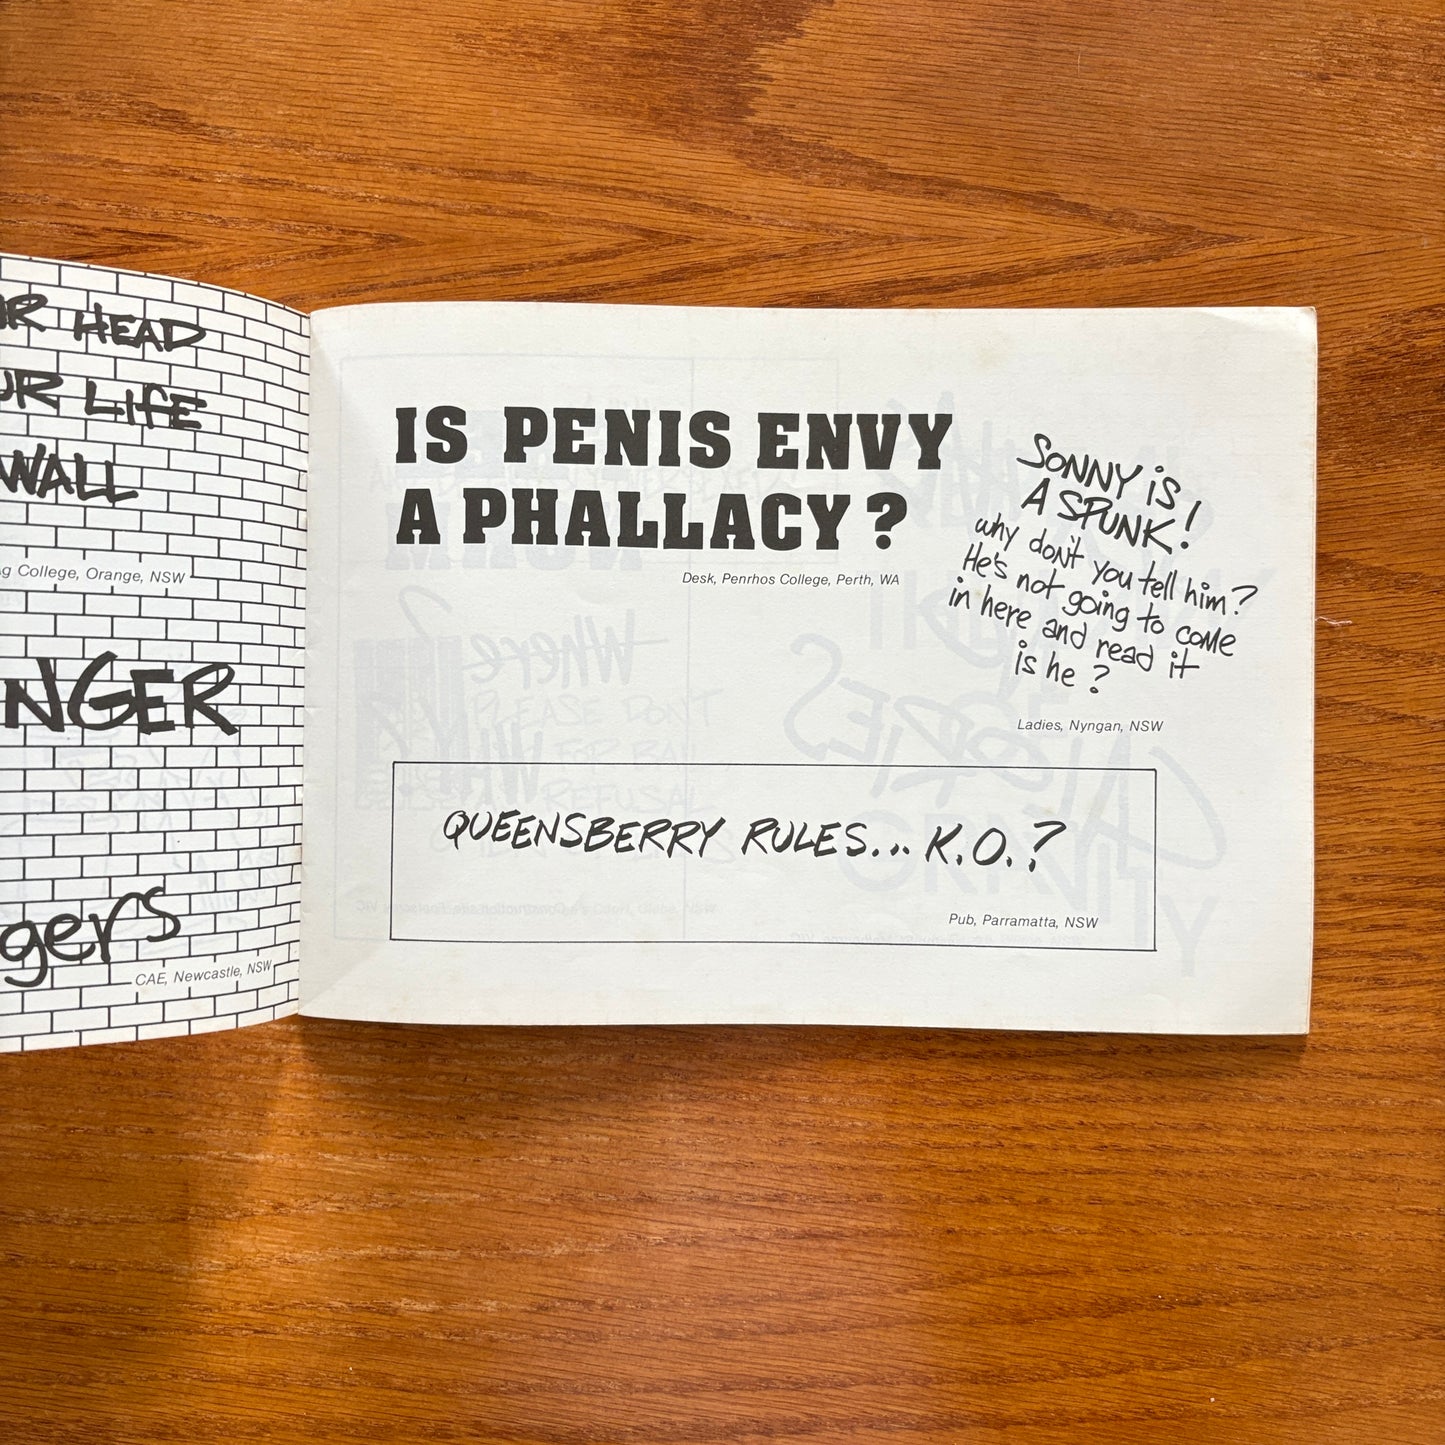 HEAD
LIFE
WALL
College, Orange, NSW
CAE, Newcastle, NSW
IS PENIS ENVY
A PHALLACY?
Desk, Penrhos College, Perth, WA
SONNY is
A SPUNK!
why don't you tell him?
He's not going to come
in here and read it
is he?
Ladies, Nyngan, NSW
QUEENSBERRY RULES... K.O.?
Pub, Parramatta, NSW